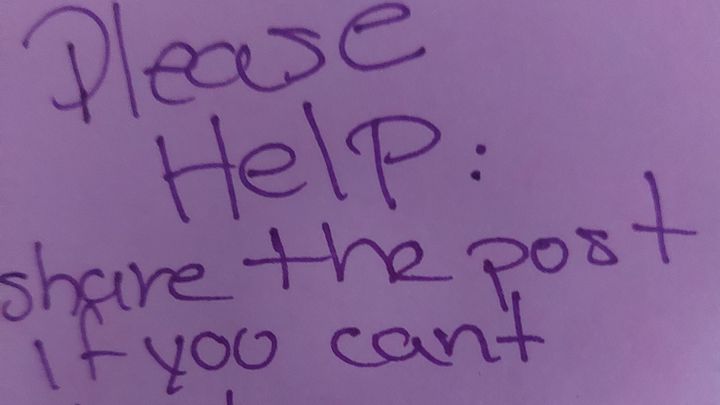 Please
Help:
share the post
if you cant